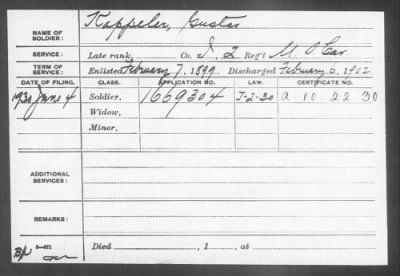 NAME OF SOLDIER: Kappeler, Gustav
SERVICE: Late rank, Co. I, 2 Reg't U. S. Cav
TERM OF SERVICE: Enlisted February 7, 1899 Discharged February 6, 1902
DATE OF FILING. CLASS. APPLICATION NO. LAW. CERTIFICATE NO.
1930 June 4 Soldier, 1659304 J-2-30 a 10 22 30
Widow,
Minor,
ADDITIONAL SERVICES:
REMARKS:
Died , 1 , at